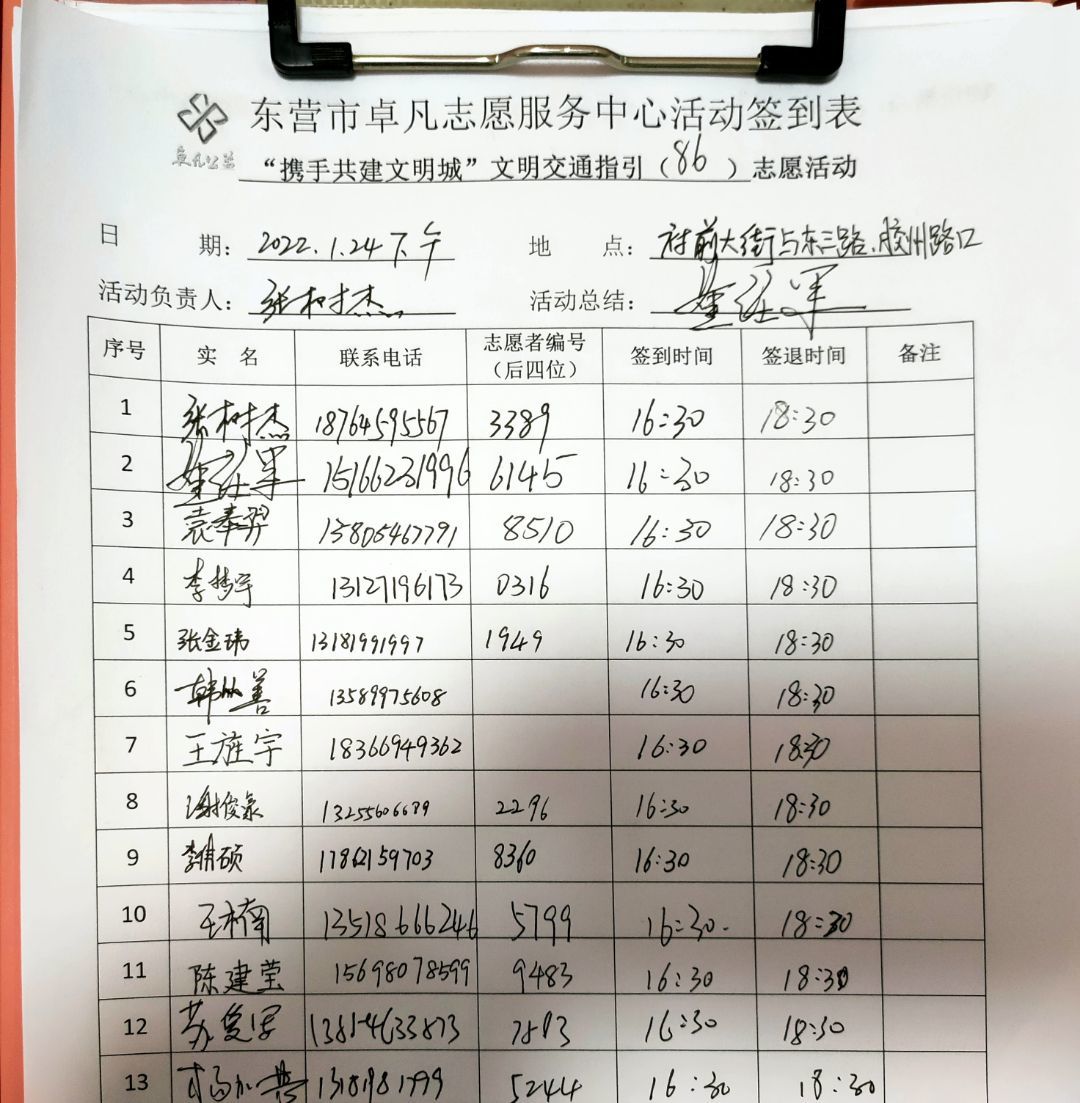 东营市卓凡志愿服务中心活动签到表
卓凡公益
“携手共建文明城”文明交通指引（86）志愿活动
日 期：2022.1.24下午 地 点：府前大街与东三路、胶州路口
活动负责人：张树杰 活动总结：
序号 实 名 联系电话 志愿者编号（后四位） 签到时间 签退时间 备注
1 张树杰 18764595567 3389 16:30 18:30
2 15166231996 6145 16:30 18:30
3 袁奉羿 13805467791 8510 16:30 18:30
4 李梦宇 13127196173 0316 16:30 18:30
5 张金玮 13181991997 1949 16:30 18:30
6 韩 善 13589975608 16:30 18:30
7 王旌宇 18366949362 16:30 18:30
8 谢俊豪 13255606689 2296 16:30 18:30
9 硕 17862159703 8360 16:30 18:30
10 王楠 13518666246 5799 16:30 18:30
11 陈建莹 15698078599 9483 16:30 18:30
12 苏 16:30 18:30
13 5244 16:30 18:30